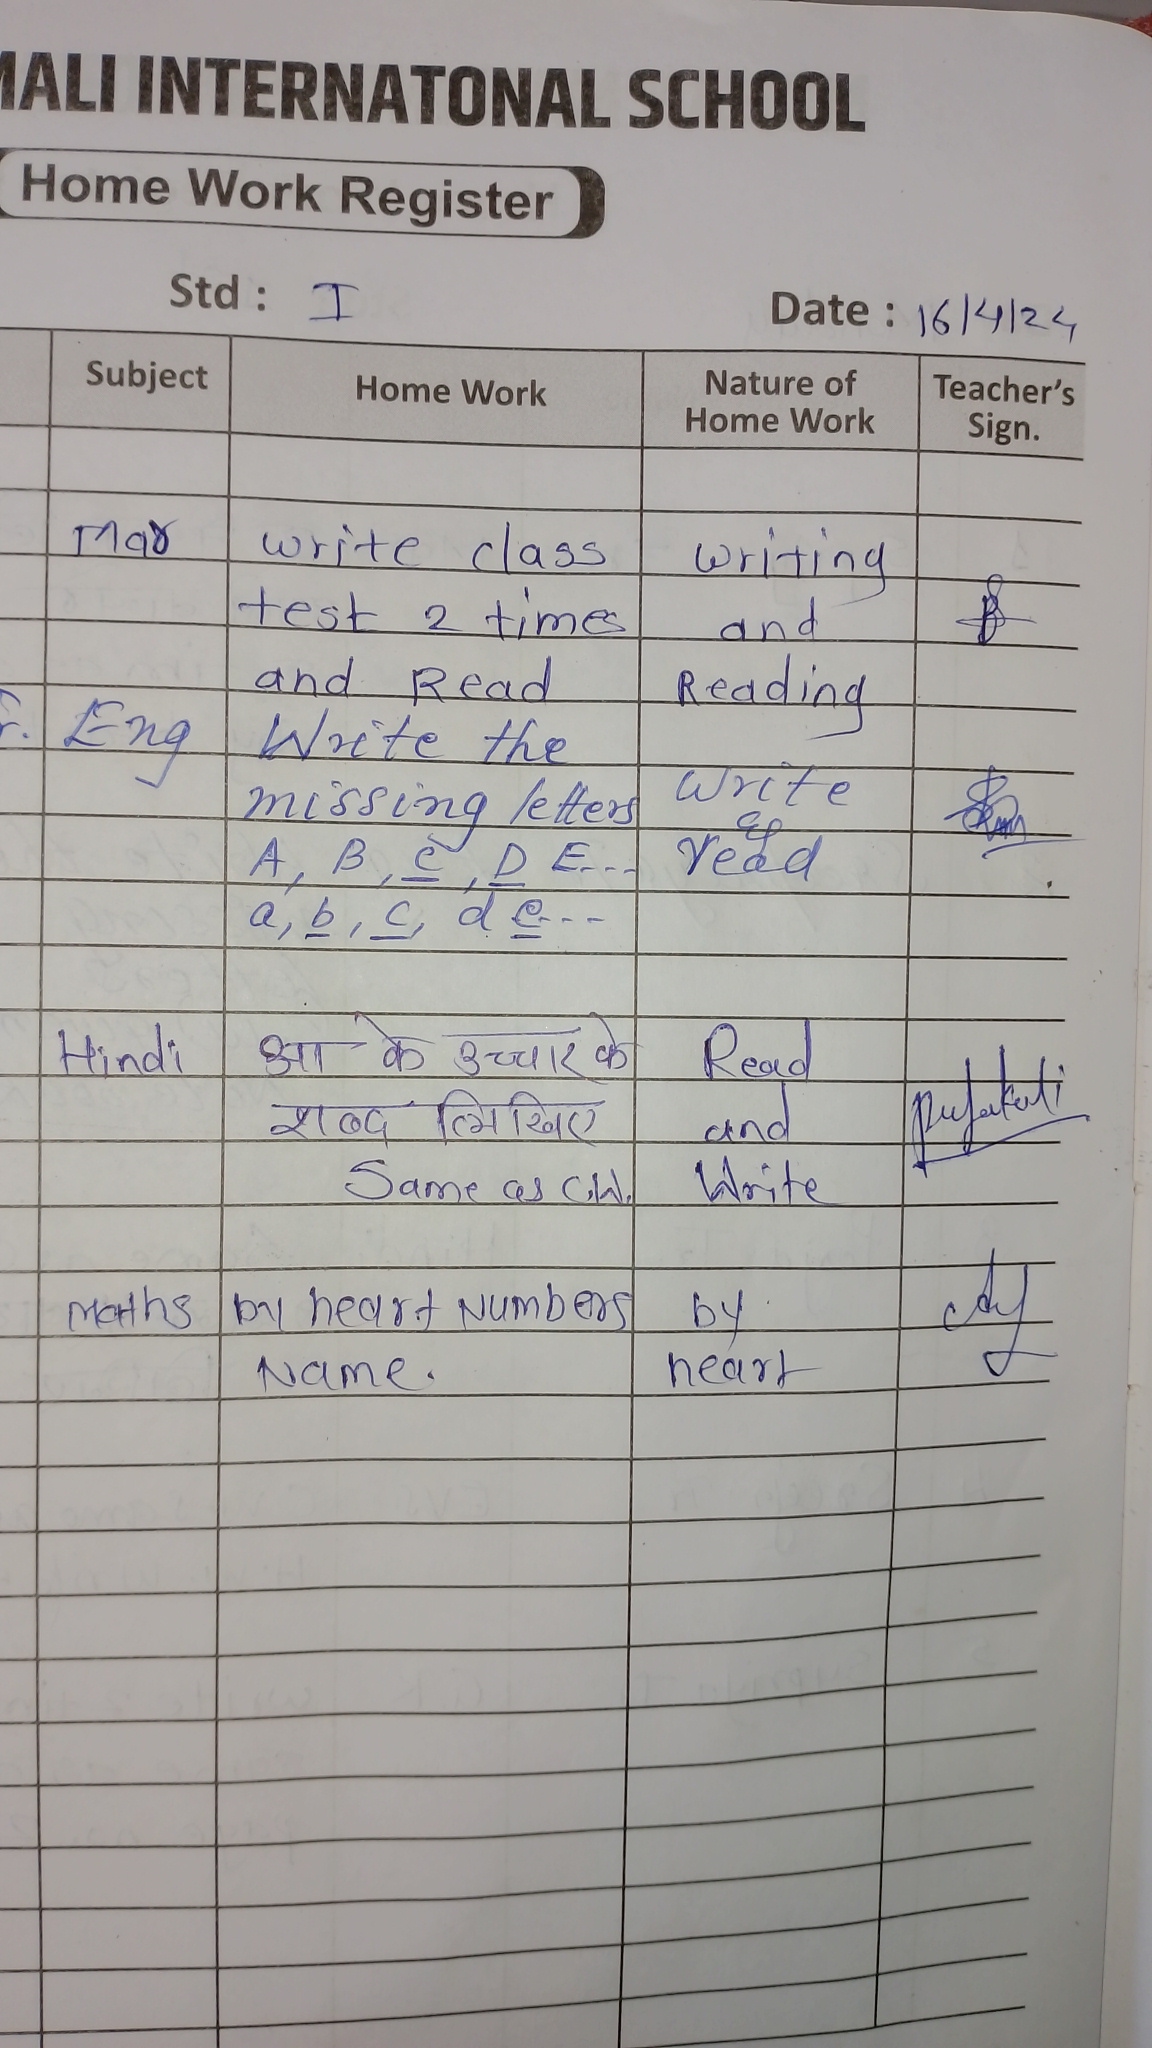 MALI INTERNATONAL SCHOOL
Home Work Register
Std : I
Date : 16/4/24
Subject Home Work Nature of Home Work Teacher's Sign.
Mar write class writing
test 2 times and
and Read Reading
Eng Write the
missing letters write
A, B, C, D E--- & read
a, b, c, d e---
Hindi आ के उच्चार के Read
शब्द लिखिए and
Same as C.W. Write
Maths by heart Numbers by
Name. heart